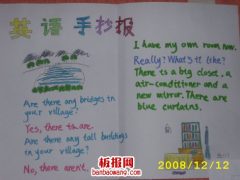 英语手抄报
Are there any bridges in
your village?
Yes, there are.
Are there any tall buildings
in your village?
No, there aren't.
I have my own room now.
Really? What's it like?
There is a big closet, a
air-conditioner and a
new mirror. There are
blue curtains.
板报网
banbaowang.com
2008/12/12